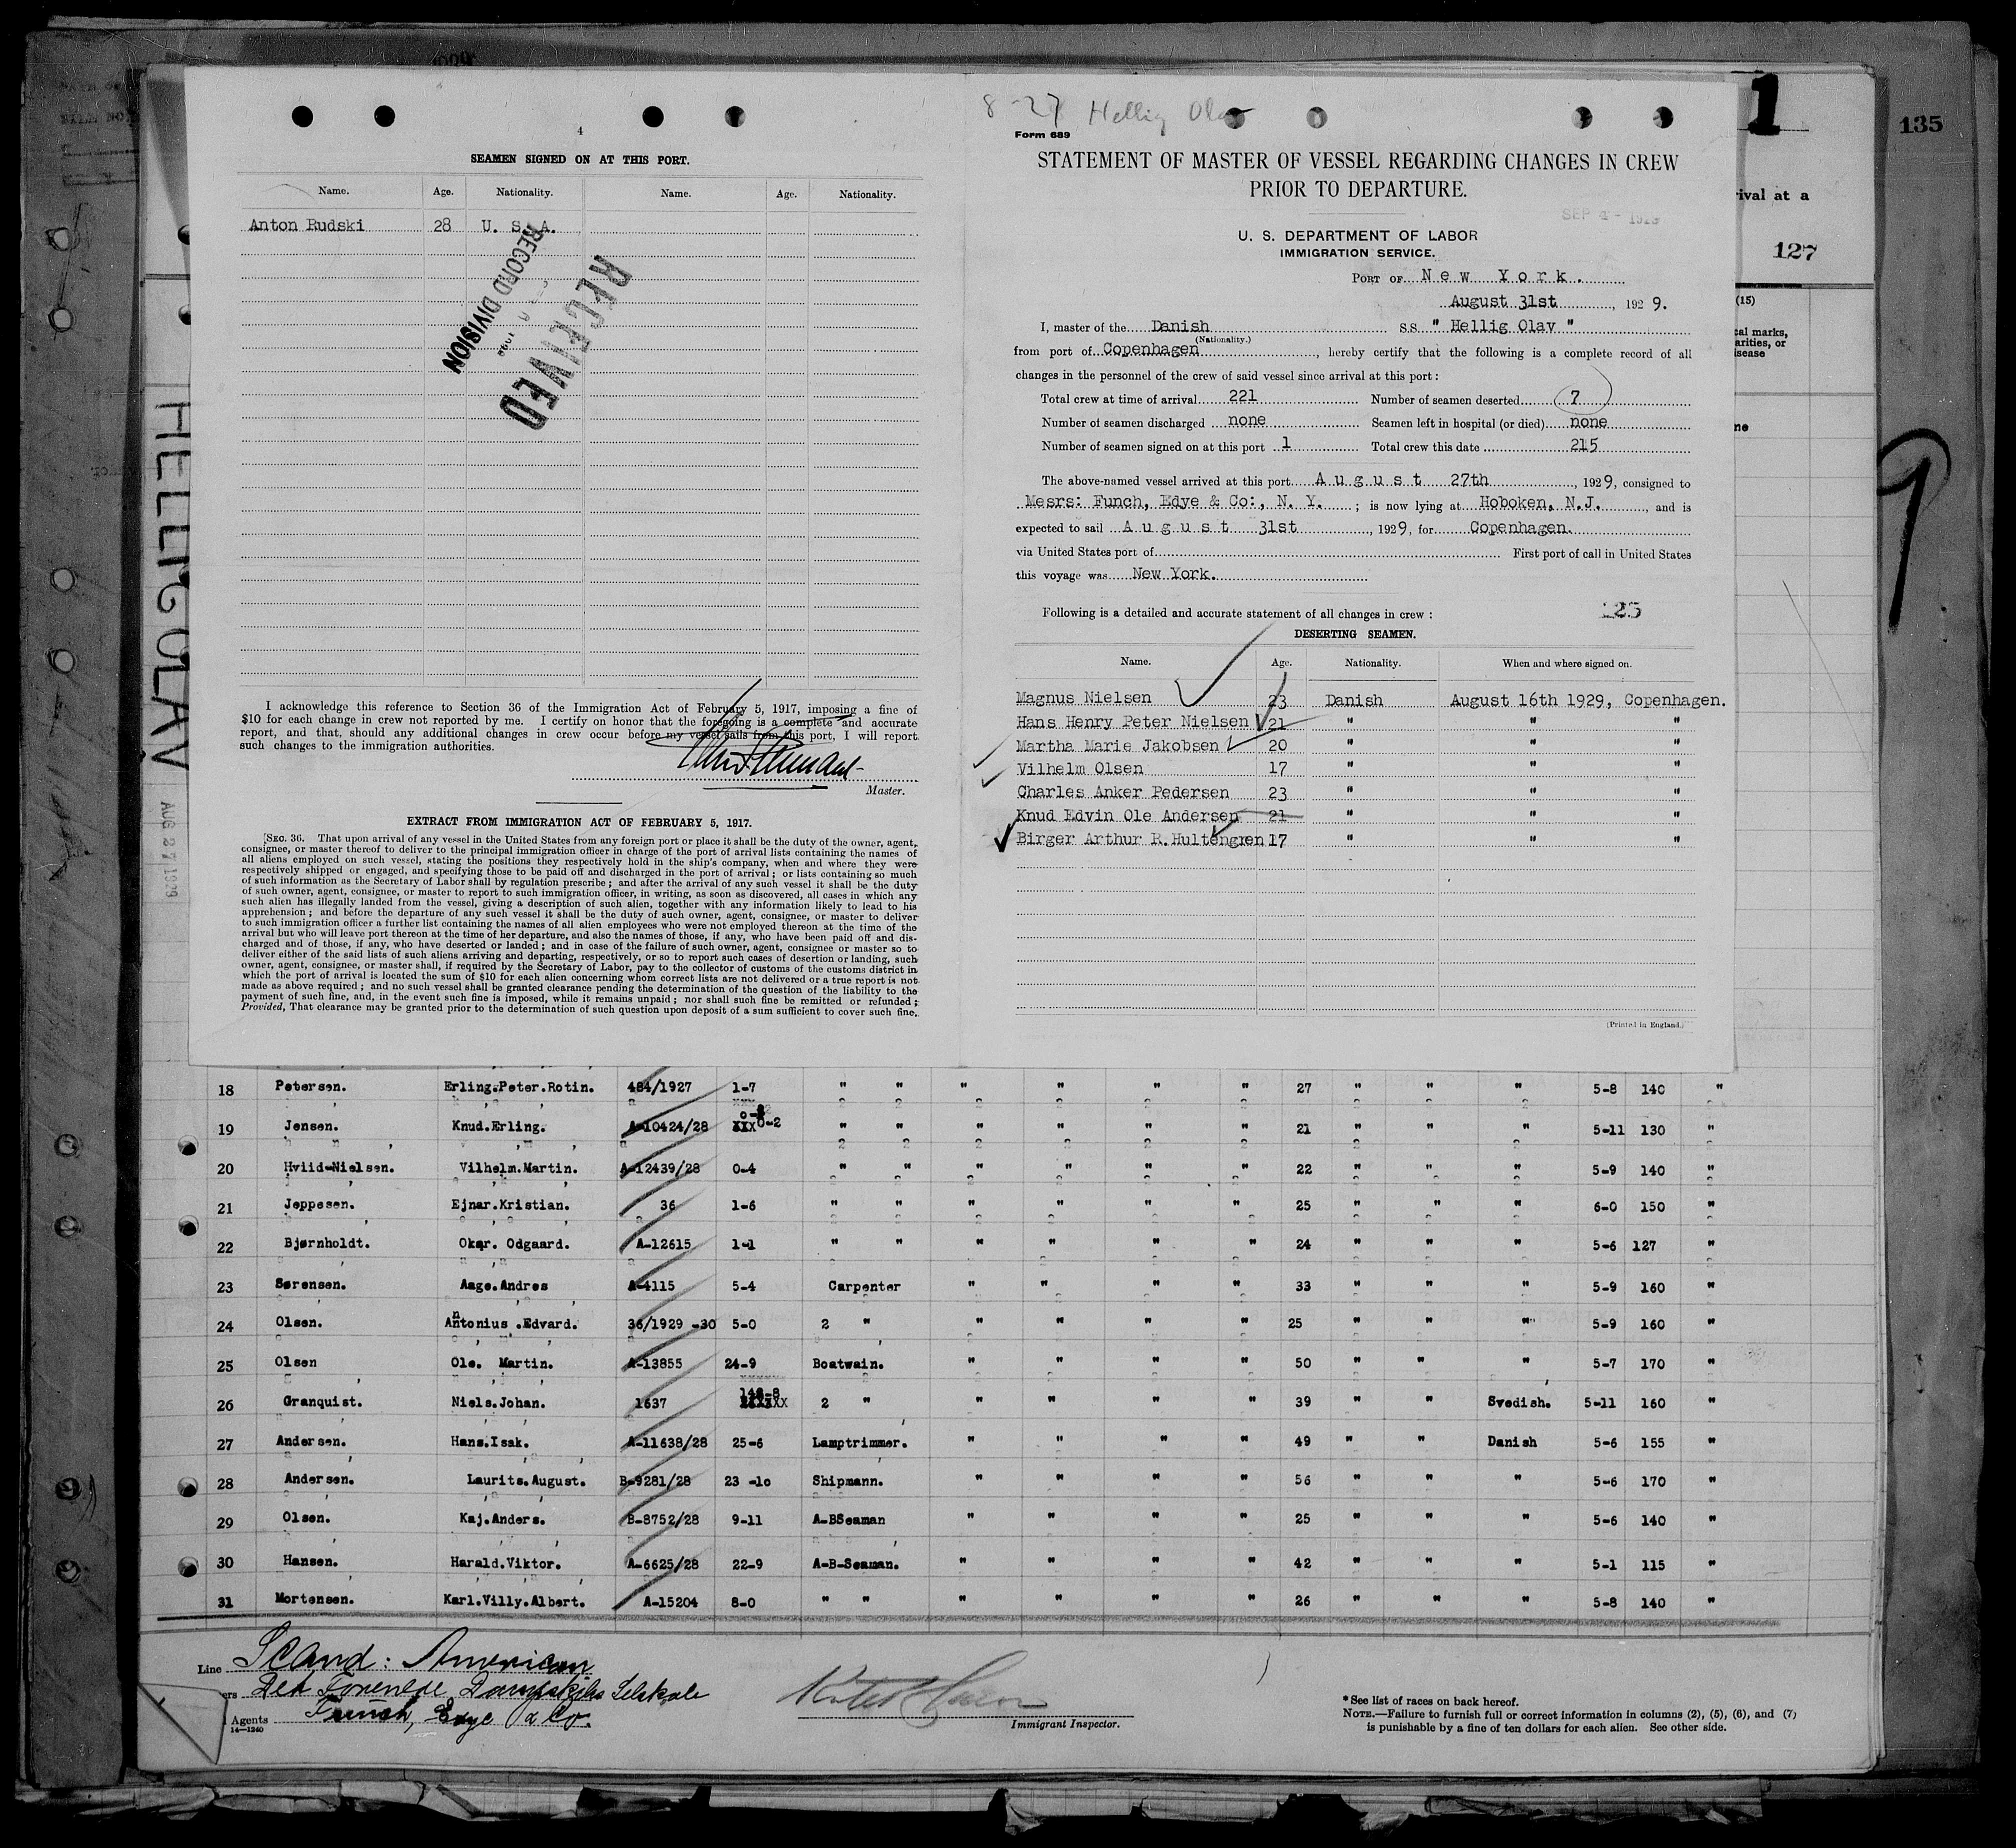 135
1
ival at a
127
(15)
cal marks,
arities, or
isease
ne
HELLIG OLAV
AUG 27 1929
4
SEAMEN SIGNED ON AT THIS PORT.
Name. Age. Nationality. Name. Age. Nationality.
Anton Rudski 28 U. S. A.
RECORD DIVISION
RECEIVED
I acknowledge this reference to Section 36 of the Immigration Act of February 5, 1917, imposing a fine of
$10 for each change in crew not reported by me. I certify on honor that the foregoing is a complete and accurate
report, and that, should any additional changes in crew occur before my vessel sails from this port, I will report
such changes to the immigration authorities.
Master.
EXTRACT FROM IMMIGRATION ACT OF FEBRUARY 5, 1917.
[SEC. 36. That upon arrival of any vessel in the United States from any foreign port or place it shall be the duty of the owner, agent,
consignee, or master thereof to deliver to the principal immigration officer in charge of the port of arrival lists containing the names of
all aliens employed on such vessel, stating the positions they respectively hold in the ship's company, when and where they were
respectively shipped or engaged, and specifying those to be paid off and discharged in the port of arrival; or lists containing so much
of such information as the Secretary of Labor shall by regulation prescribe; and after the arrival of any such vessel it shall be the duty
of such owner, agent, consignee, or master to report to such immigration officer, in writing, as soon as discovered, all cases in which any
such alien has illegally landed from the vessel, giving a description of such alien, together with any information likely to lead to his
apprehension; and before the departure of any such vessel it shall be the duty of such owner, agent, consignee, or master to deliver
to such immigration officer a further list containing the names of all alien employees who were not employed thereon at the time of the
arrival but who will leave port thereon at the time of her departure, and also the names of those, if any, who have been paid off and dis-
charged and of those, if any, who have deserted or landed; and in case of the failure of such owner, agent, consignee or master so to
deliver either of the said lists of such aliens arriving and departing, respectively, or so to report such cases of desertion or landing, such
owner, agent, consignee, or master shall, if required by the Secretary of Labor, pay to the collector of customs of the customs district in
which the port of arrival is located the sum of $10 for each alien concerning whom correct lists are not delivered or a true report is not
made as above required; and no such vessel shall be granted clearance pending the determination of the question of the liability to the
payment of such fine, and, in the event such fine is imposed, while it remains unpaid; nor shall such fine be remitted or refunded;
Provided, That clearance may be granted prior to the determination of such question upon deposit of a sum sufficient to cover such fine.
8-27 Hellig Olav
Form 689
STATEMENT OF MASTER OF VESSEL REGARDING CHANGES IN CREW
PRIOR TO DEPARTURE.
SEP 4 - 1929
U. S. DEPARTMENT OF LABOR
IMMIGRATION SERVICE.
PORT OF New York.
August 31st, 1929.
I, master of the Danish S.S. " Hellig Olav "
(Nationality.)
from port of Copenhagen, hereby certify that the following is a complete record of all
changes in the personnel of the crew of said vessel since arrival at this port:
Total crew at time of arrival 221 Number of seamen deserted 7
Number of seamen discharged none Seamen left in hospital (or died) none
Number of seamen signed on at this port 1 Total crew this date 215
The above-named vessel arrived at this port August 27th, 1929, consigned to
Mesrs: Funch, Edye & Co:, N. Y. ; is now lying at Hoboken, N.J., and is
expected to sail August 31st, 1929, for Copenhagen.
via United States port of First port of call in United States
this voyage was New York.
Following is a detailed and accurate statement of all changes in crew: 125
DESERTING SEAMEN.
Name. Age. Nationality. When and where signed on.
Magnus Nielsen 23 Danish August 16th 1929, Copenhagen.
Hans Henry Peter Nielsen 21 " " "
Martha Marie Jakobsen 20 " " "
Vilhelm Olsen 17 " " "
Charles Anker Pedersen 23 " " "
Knud Edvin Ole Andersen 21 " " "
Birger Arthur R.Hultengren 17 " " "
(Printed in England.)
18 Petersen. Erling.Peter.Rotin. 484/1927 1-7 " " " " " " 27 " " " 5-8 140 "
19 Jensen. Knud.Erling. A-10424/28 XXX 0-2 " " " " " " 21 " " " 5-11 130 "
20 Hviid-Nielsen. Vilhelm.Martin. A-12439/28 0-4 " " " " " " 22 " " " 5-9 140 "
21 Jeppesen. Ejnar.Kristian. 36 1-6 " " " " " " 25 " " " 6-0 150 "
22 Bjørnholdt. Okar. Odgaard. A-12615 1-1 " " " " " " 24 " " " 5-6 127 "
23 Sørensen. Aage.Andres A-4115 5-4 Carpenter " " " " 33 " " " 5-9 160 "
24 Olsen. Antonius .Edvard. 36/1929 -30 5-0 2 " " " " " 25 " " " 5-9 160 "
25 Olsen Ole. Martin. A-13855 24-9 Boatwain. " " " " 50 " " " 5-7 170 "
26 Granquist. Niels.Johan. 1637 148-8 2 " " " " " 39 " " Svedish. 5-11 160 "
27 Andersen. Hans.Isak. A-11638/28 25-6 Lamptrimmer. " " " " 49 " " Danish 5-6 155 "
28 Andersen. Laurits.August. B-9281/28 23 -10 Shipmann. " " " " 56 " " " 5-6 170 "
29 Olsen. Kaj.Anders. B-8752/28 9-11 A-BSeaman " " " " 25 " " " 5-6 140 "
30 Hansen. Harald.Viktor. A-6625/28 22-9 A-B-Seaman. " " " " 42 " " " 5-1 115 "
31 Mortensen. Karl.Villy.Albert. A-15204 8-0 " " " " " " 26 " " " 5-8 140 "
Line Scand: American
ers Det Forenede Dampskibs Selskab
Agents Funch, Edye & Co.
14—1240
Immigrant Inspector.
* See list of races on back hereof.
NOTE.—Failure to furnish full or correct information in columns (2), (5), (6), and (7)
is punishable by a fine of ten dollars for each alien. See other side.